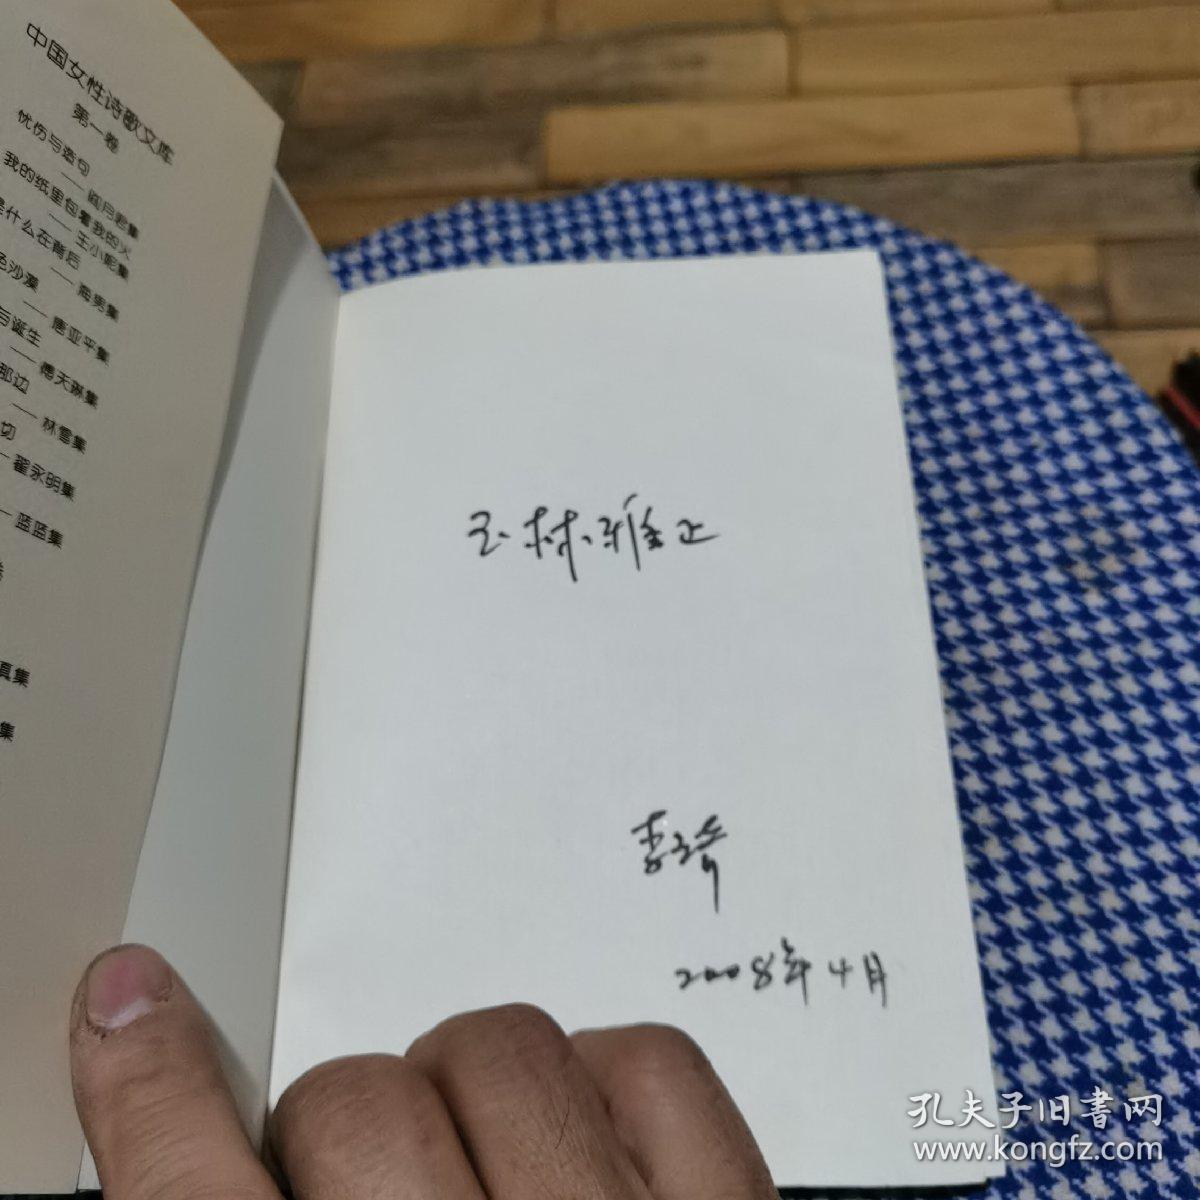 中国女性诗歌文库
第一卷
忧伤与造句
——阎月君集
我的纸里包着我的火
——王小妮集
是什么在背后
——海男集
色沙漠
——唐亚平集
与诞生
——傅天琳集
那边
——林雪集
切
翟永明集
——蓝蓝集
真集
集
玉林雅正
2008年4月
孔夫子旧書网
www.kongfz.com